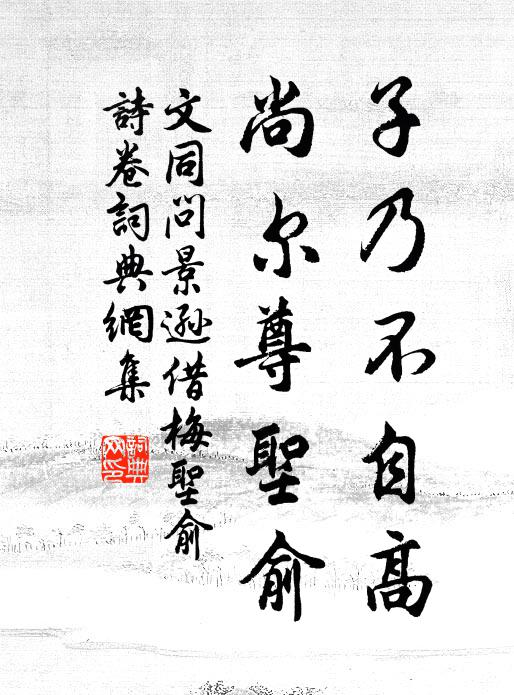 子乃不自高
尚尔尊聖俞
文同問景遜借梅聖俞
詩卷詞典網集
詞典
网印